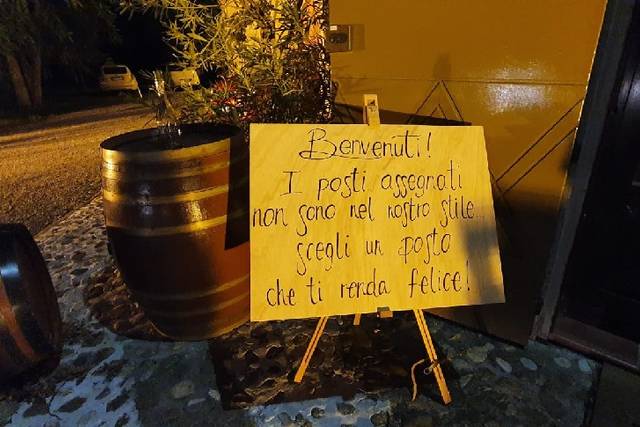 Benvenuti!
I posti assegnati
non sono nel nostro stile...
scegli un posto
che ti renda felice!